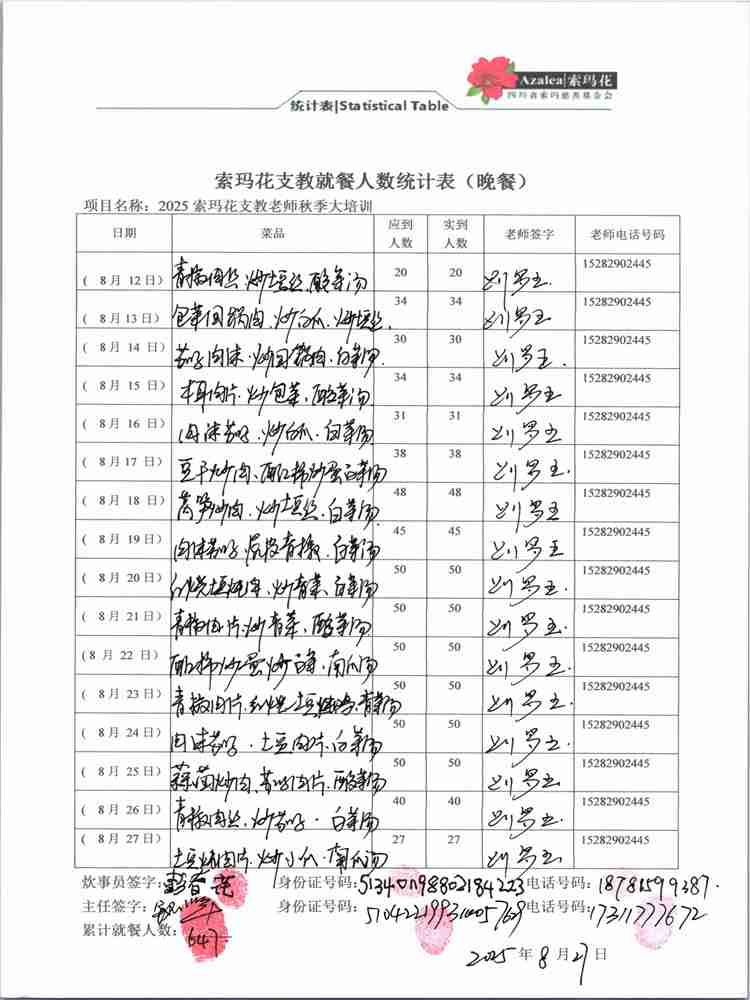 Azalea|索玛花
四川省索玛慈善基金会
统计表|Statistical Table
索玛花支教就餐人数统计表（晚餐）
项目名称：2025 索玛花支教老师秋季大培训
日期 菜品 应到人数 实到人数 老师签字 老师电话号码
( 8月 12日) 青椒肉丝.炒土豆丝.酸菜汤 20 20 15282902445
( 8月13日) 包菜回锅肉.炒白瓜.炒土豆丝 34 34 15282902445
( 8月 14 日) 炒回锅肉.白菜汤. 30 30 15282902445
( 8月 15 日) 木耳肉片.炒包菜.酸菜汤 34 34 15282902445
( 8月 16 日) 肉沫.炒白瓜.白菜汤 31 31 15282902445
( 8月17 日) 豆干炒肉.炒蛋白菜汤 38 38 15282902445
( 8月 18 日) 莴笋炒肉.炒土豆丝.白菜汤 48 48 15282902445
( 8月 19 日) 肉沫.虎皮青椒.白菜汤 45 45 15282902445
( 8月 20日) 红烧土豆.炒青菜.白菜汤 50 50 15282902445
( 8月 21日) 青椒肉片.炒青菜.酸菜汤 50 50 15282902445
(8月 22 日) 炒蛋.南瓜汤 50 50 15282902445
( 8月 23日) 青椒肉片.红烧土豆.青菜汤 50 50 15282902445
( 8月 24日) 肉沫.土豆肉片.白菜汤 50 50 15282902445
( 8月 25日) 炒肉.肉片.酸菜汤 50 50 15282902445
( 8月 26日) 青椒肉丝.炒.白菜汤 40 40 15282902445
( 8月 27日) 土豆烧肉片.炒小瓜.南瓜汤 27 27 15282902445
炊事员签字： 身份证号码： 电话号码：18781599387.
主任签字： 身份证号码： 电话号码：17311777672
累计就餐人数：647
2025年8月27日